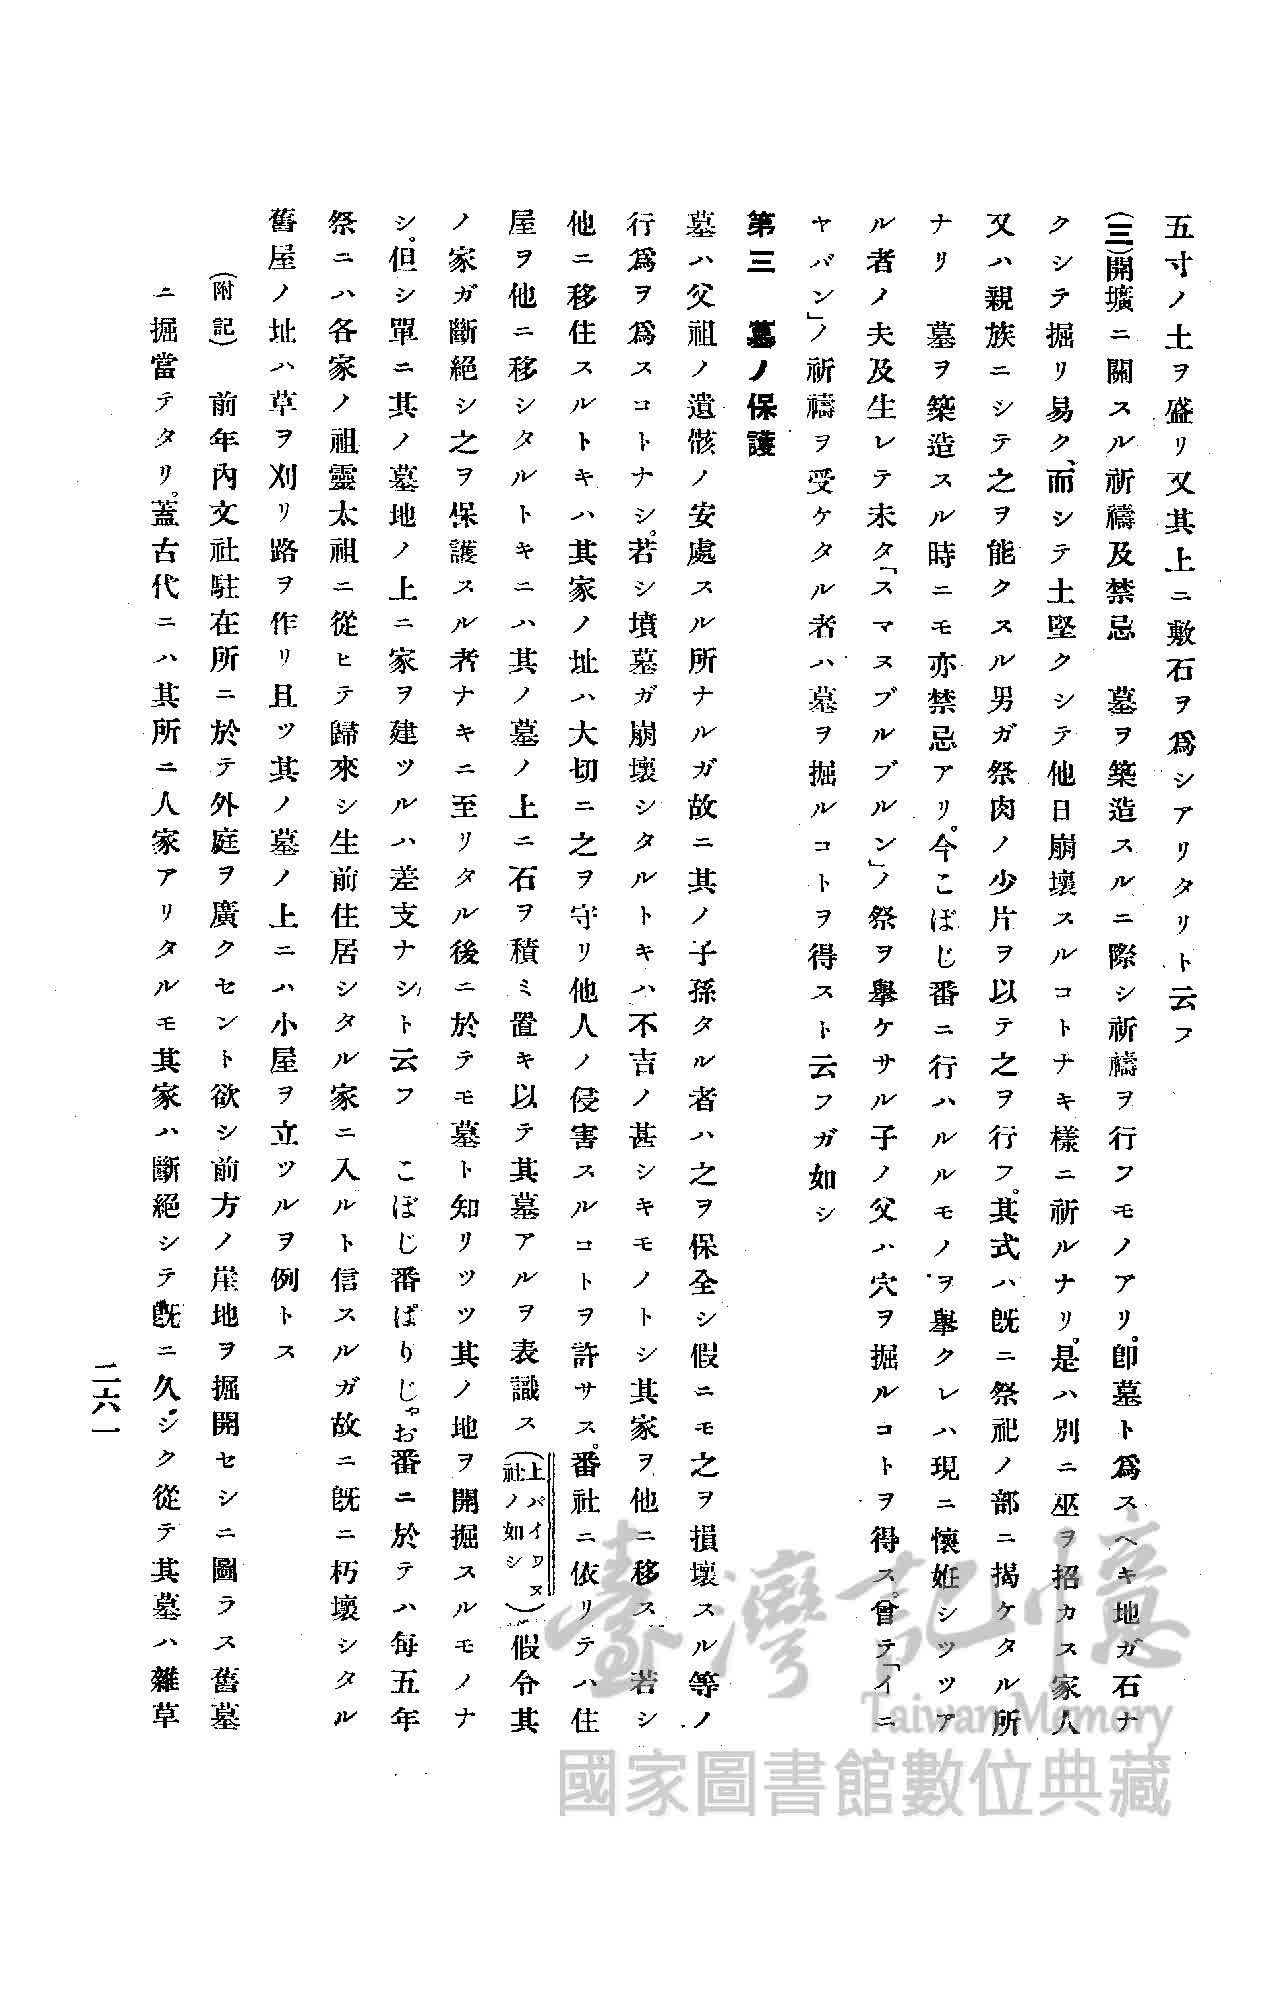 五寸ノ土ヲ盛リ又其上ニ敷石ヲ爲シアリタリト云フ
(三)開壙ニ關スル祈禱及禁忌　墓ヲ築造スルニ際シ祈禱ヲ行フモノアリ。卽墓ト爲スヘキ地ガ石ナ
クシテ掘リ易ク、而シテ土堅クシテ他日崩壞スルコトナキ樣ニ祈ルナリ。是ハ別ニ巫ヲ招カス家人
又ハ親族ニシテ之ヲ能クスル男ガ祭肉ノ少片ヲ以テ之ヲ行フ。其式ハ旣ニ祭祀ノ部ニ揭ケタル所
ナリ　墓ヲ築造スル時ニモ亦禁忌アリ。今こぼじ番ニ行ハルルモノヲ擧クレハ現ニ懷姙シツツア
ル者ノ夫及生レテ未タ「スマスブルブルン」ノ祭ヲ擧ケサル子ノ父ハ穴ヲ掘ルコトヲ得ス。曾テ「イニ
ヤバン」ノ祈禱ヲ受ケタル者ハ墓ヲ掘ルコトヲ得スト云フガ如シ
第三　墓ノ保護
墓ハ父祖ノ遺骸ノ安處スル所ナルガ故ニ其ノ子孫タル者ハ之ヲ保全シ假ニモ之ヲ損壞スル等ノ
行爲ヲ爲スコトナシ。若シ墳墓ガ崩壞シタルトキハ不吉ノ甚シキモノトシ其家ヲ他ニ移ス　若シ
他ニ移住スルトキハ其家ノ址ハ大切ニ之ヲ守リ他人ノ侵害スルコトヲ許サス。番社ニ依リテハ住
屋ヲ他ニ移シタルトキニハ其ノ墓ノ上ニ石ヲ積ミ置キ以テ其墓アルヲ表識ス(上バイワヌ社ノ如シ)假令其
ノ家ガ斷絕シ之ヲ保護スル者ナキニ至リタル後ニ於テモ墓ト知リツツ其ノ地ヲ開掘スルモノナ
シ。但シ單ニ其ノ墓地ノ上ニ家ヲ建ツルハ差支ナシト云フ　こぼじ番ぱりじゃお番ニ於テハ每五年
祭ニハ各家ノ祖靈太祖ニ從ヒテ歸來シ生前住居シタル家ニ入ルト信スルガ故ニ旣ニ朽壞シタル
舊屋ノ址ハ草ヲ刈リ路ヲ作リ且ツ其ノ墓ノ上ニハ小屋ヲ立ツルヲ例トス
(附記)　前年內文社駐在所ニ於テ外庭ヲ廣クセント欲シ前方ノ崖地ヲ掘開セシニ圖ラス舊墓
ニ掘當テタリ。蓋古代ニハ其所ニ人家アリタルモ其家ハ斷絕シテ旣ニ久シク從テ其墓ハ雜草
二六一
臺灣記憶
Taiwan Memory
國家圖書館數位典藏